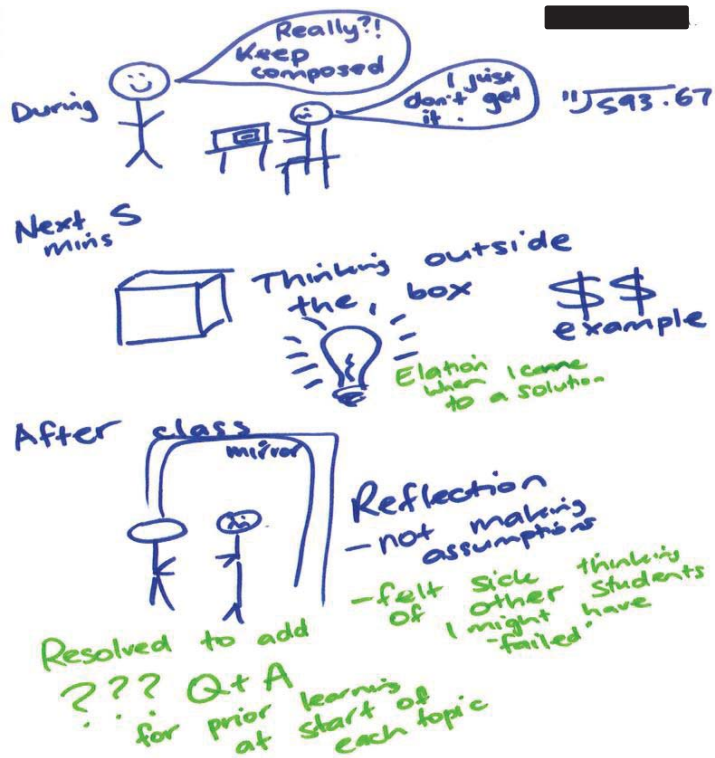 Really?!
Keep
composed
I just
don't get
it.
During
11)593.67
Next 5
mins
Thinking outside
the box
$$
example
Elation I came
when
to a solution
After class
mirror
Reflection
- not making
assumptions
- felt sick thinking
of other students
I might have
"failed"
Resolved to add
??? Q+A
for prior learning
at start of
each topic